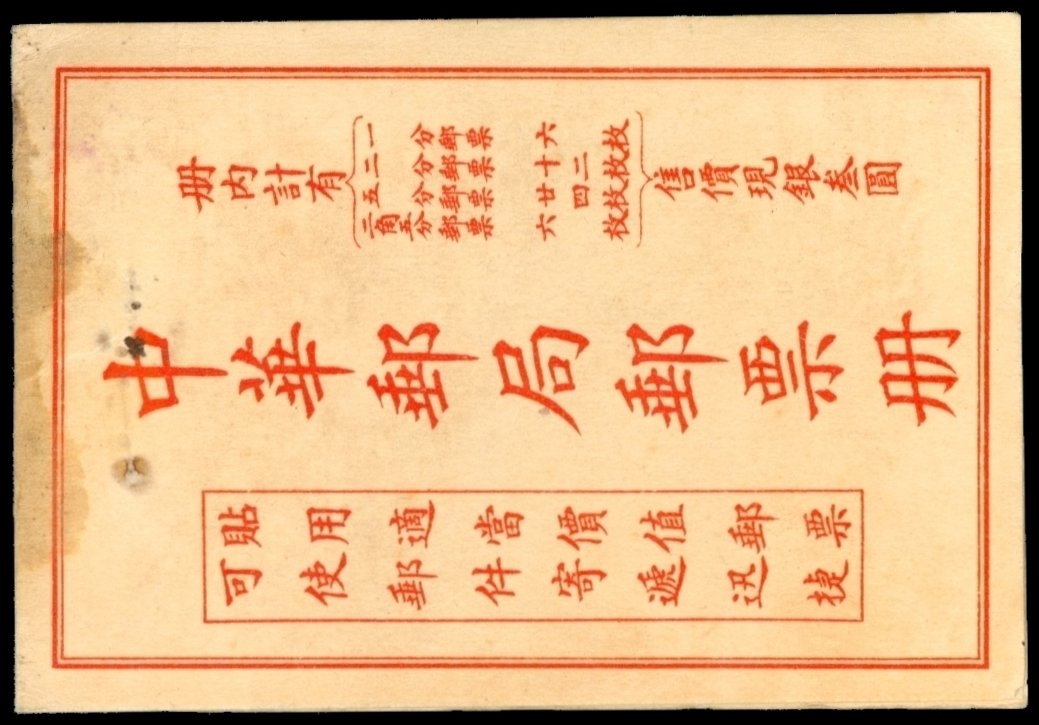 册內計有
一分郵票六枚
二分郵票十二枚
五分郵票廿四枚
二角五分郵票六枚
售價現銀叁圓
中華郵局郵票册
貼用適當價值郵票
可使郵件寄遞迅捷